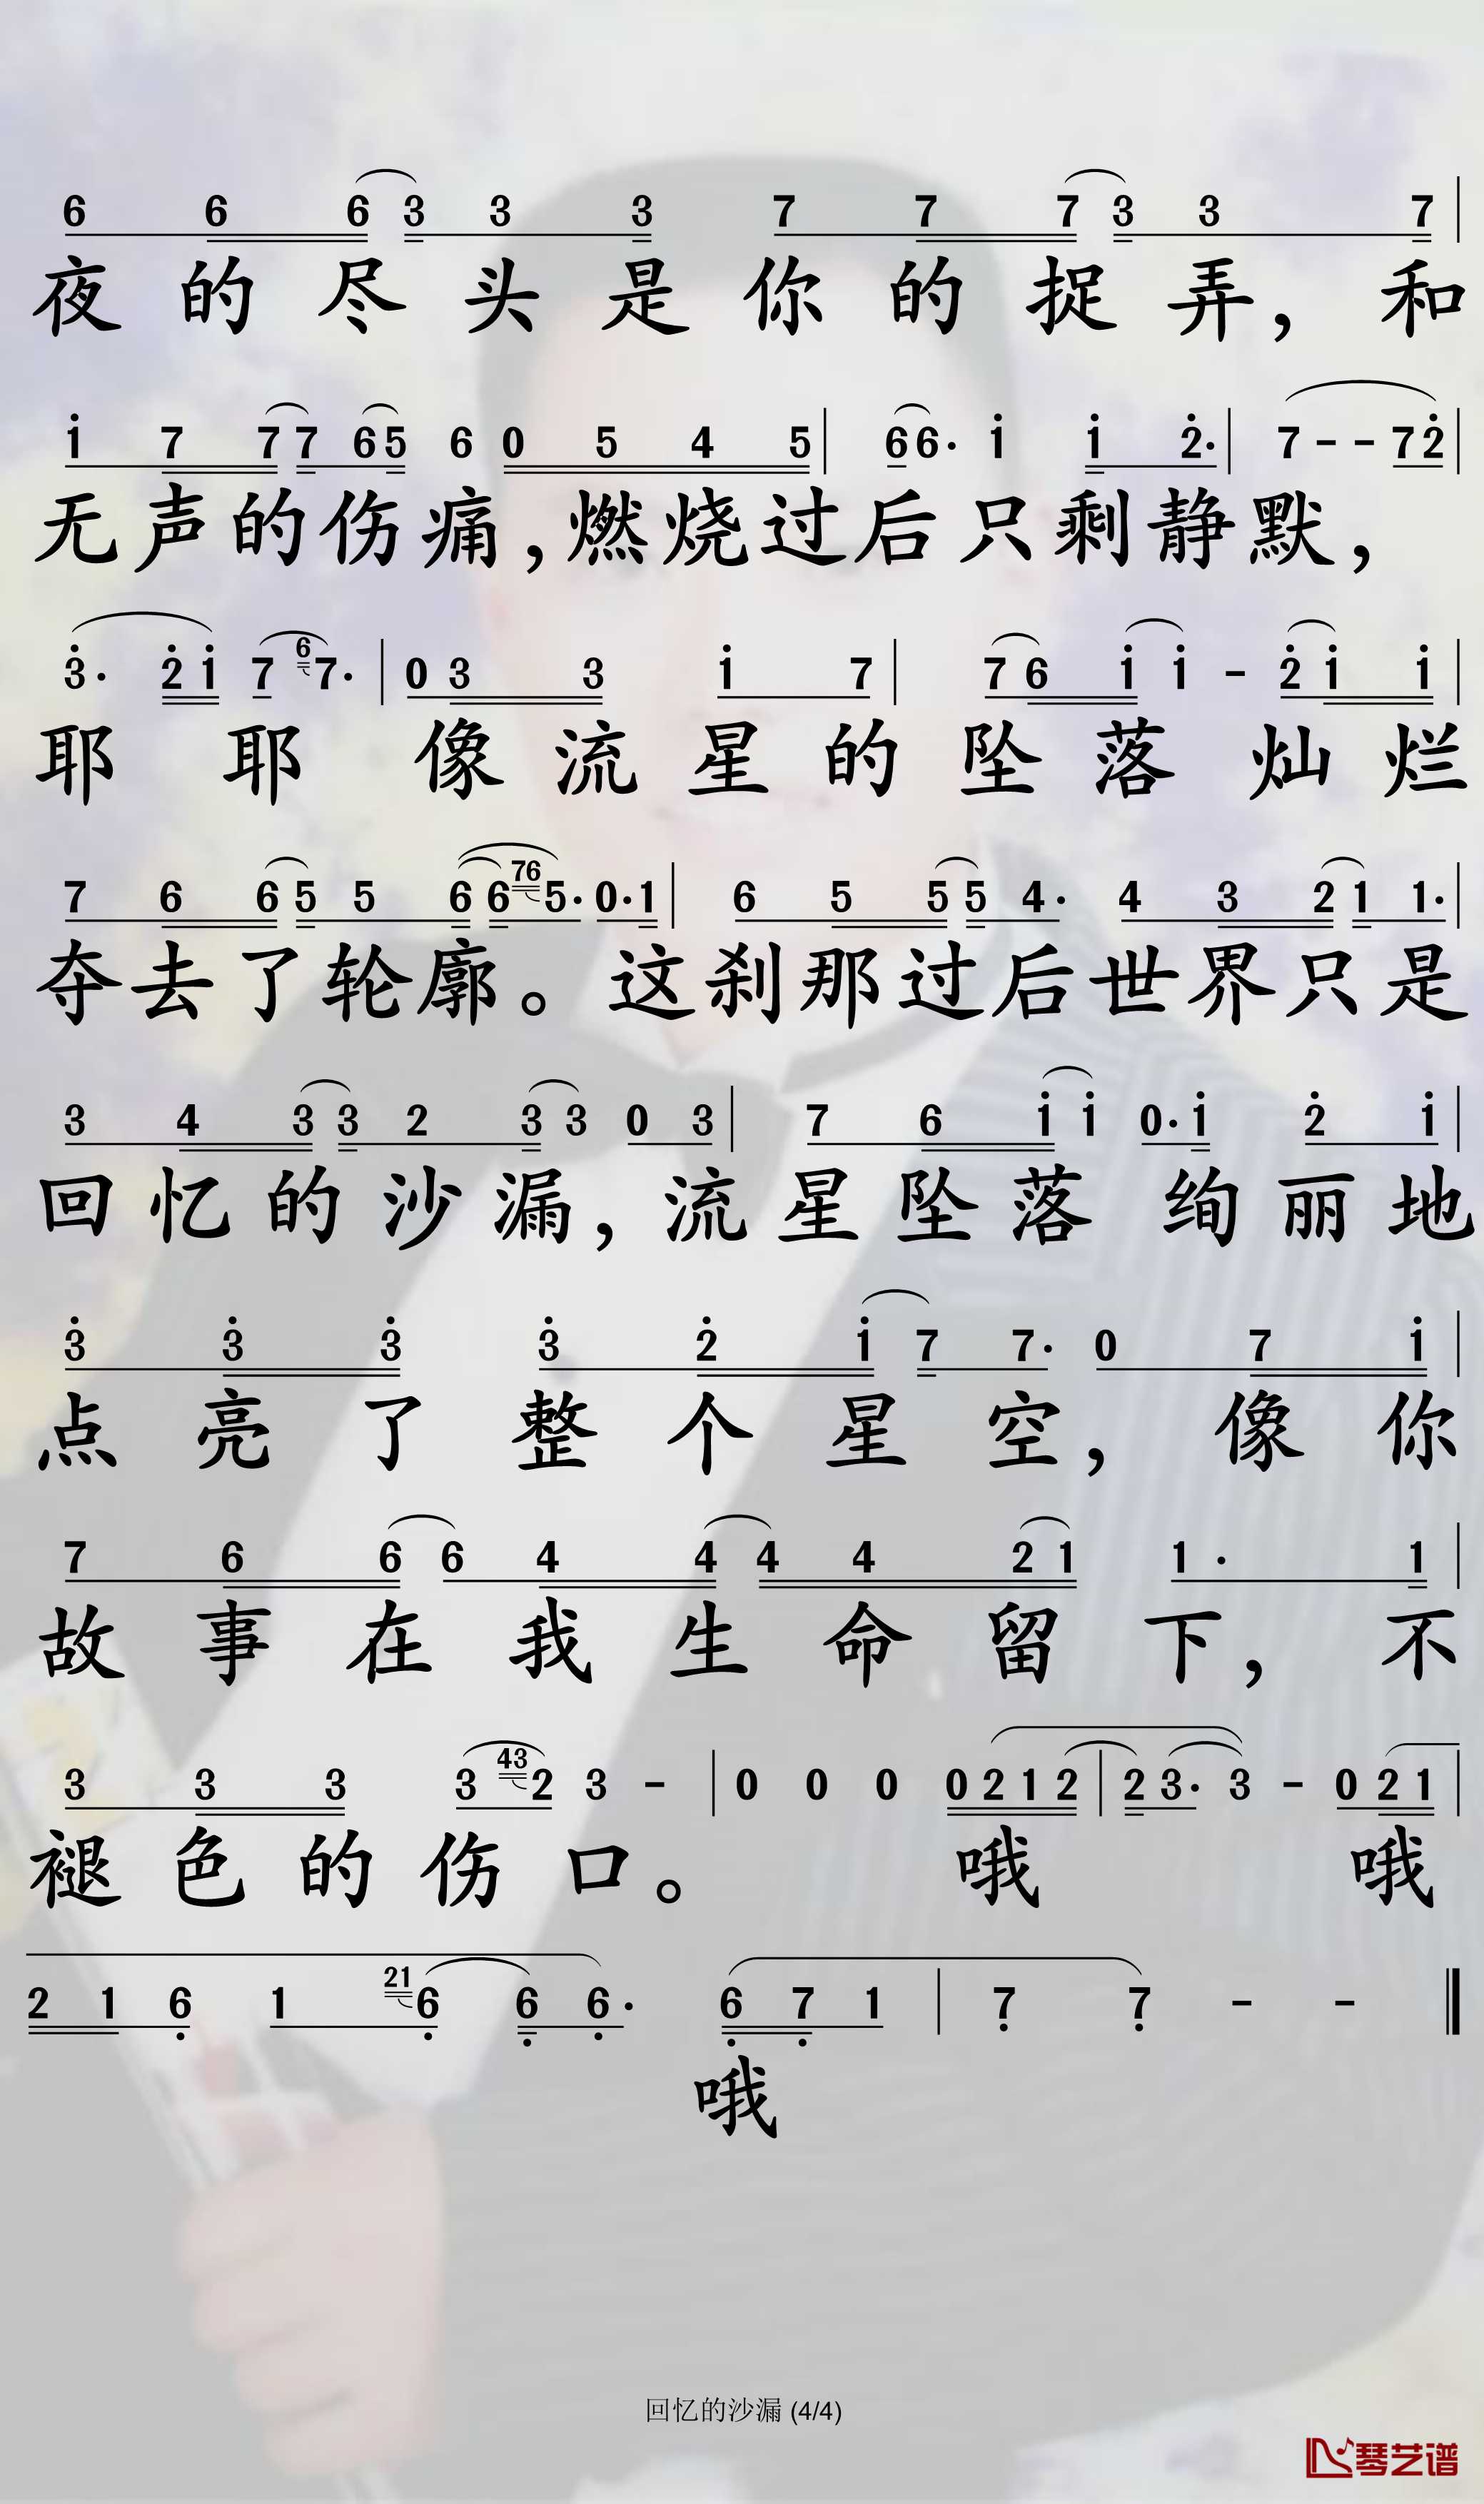 6 6 6 3 3 3 7 7 7 3 3 7 |
夜的尽头是你的捉弄，和
1̇ 7 7 7 6 5 6 0 5 4 5 | 6 6· 1̇ 1̇ 2̇· | 7 - - 7 2̇ |
无声的伤痛，燃烧过后只剩静默，
3̇· 2̇ 1̇ 7 6 7· | 0 3 3 1̇ 7 | 7 6 1̇ 1̇ - 2̇ 1̇ 1̇ |
耶耶像流星的坠落灿烂
7 6 6 5 5 6 6 76 5· 0· 1 | 6 5 5 5 4· 4 3 2 1 1· |
夺去了轮廓。这刹那过后世界只是
3 4 3 3 2 3 3 0 3 | 7 6 1̇ 1̇ 0· 1̇ 2̇ 1̇ |
回忆的沙漏，流星坠落绚丽地
3̇ 3̇ 3̇ 3̇ 2̇ 1̇ 7 7· 0 7 1̇ |
点亮了整个星空，像你
7 6 6 6 4 4 4 4 2 1 1· 1 |
故事在我生命留下，不
3 3 3 3 43 2 3 - | 0 0 0 0 2 1 2 | 2 3· 3 - 0 2 1 |
褪色的伤口。哦哦
2 1 6̣ 1 21 6̣ 6̣ 6̣· 6̣ 7̣ 1 | 7̣ 7̣ - - ‖
哦
回忆的沙漏 (4/4)
琴艺谱